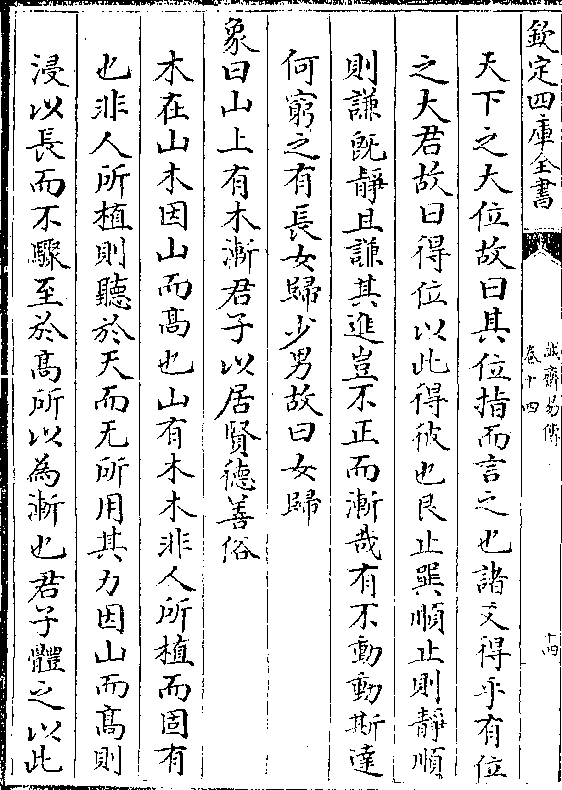 欽定四庫全書
誠齋易傳
卷十四
十四
天下之大位故曰其位指而言之也諸爻得乎有位
之大君故曰得位以此得彼也艮止巽順止則靜順
則謙既靜且謙其進豈不正而漸哉有不動動斯達
何窮之有長女歸少男故曰女歸
象曰山上有木漸君子以居賢德善俗
木在山木因山而髙也山有木木非人所植而固有
也非人所植則聽於天而无所用其力因山而髙則
浸以長而不驟至於髙所以為漸也君子體之以此